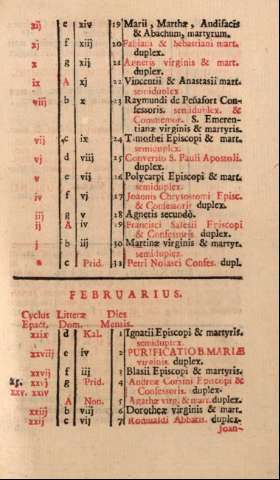 xij e xiv 19 Marii, Marthæ, Audifacis
& Abachum, martyrum.
xj f xiij 20 Fabiani & Sebastiani mart.
duplex.
x g xij 21 Agnetis virginis & mart.
duplex.
ix A xj 22 Vincentii & Anastasii mart.
semiduplex
viij b x 23 Raymundi de Peñafort Con-
fessoris. semiduplex. &
Commemor. S. Emeren-
tianæ virginis & martyris.
vij c ix 24 Timothei Episcopi & mart.
semiduplex.
vj d viij 25 Conversio S. Pauli Apostoli.
duplex.
v e vij 26 Polycarpi Episcopi & mart.
semiduplex.
iv f vj 27 Joannis Chrysostomi Episc.
& Confessoris duplex.
iij g v 28 Agnetis secundò.
ij A iv 29 Francisci Salesii Episcopi
& Confessoris duplex.
j b iij 30 Martinæ virginis & martyr.
semiduplex.
* c Prid. 31 Petri Nolasci Confes. dupl.
FEBRUARIUS.
Cyclus Litteræ Dies
Epact. Dom. Mensis.
xxix d Kal. 1 Ignatii Episcopi & martyris.
semiduplex.
xxviij e iv 2 PURIFICATIO B. MARIÆ
virginis. duplex.
xxvij f iij 3 Blasii Episcopi & martyris.
25. xxvj g Prid. 4 Andreæ Corsini Episcopi &
xxv. xxiv Confessoris. duplex.
A Non. 5 Agathæ virg. & mart. duplex.
xxiij b viij 6 Dorotheæ virginis & mart.
xxij c vij 7 Romualdi Abbatis. duplex.
Joan-